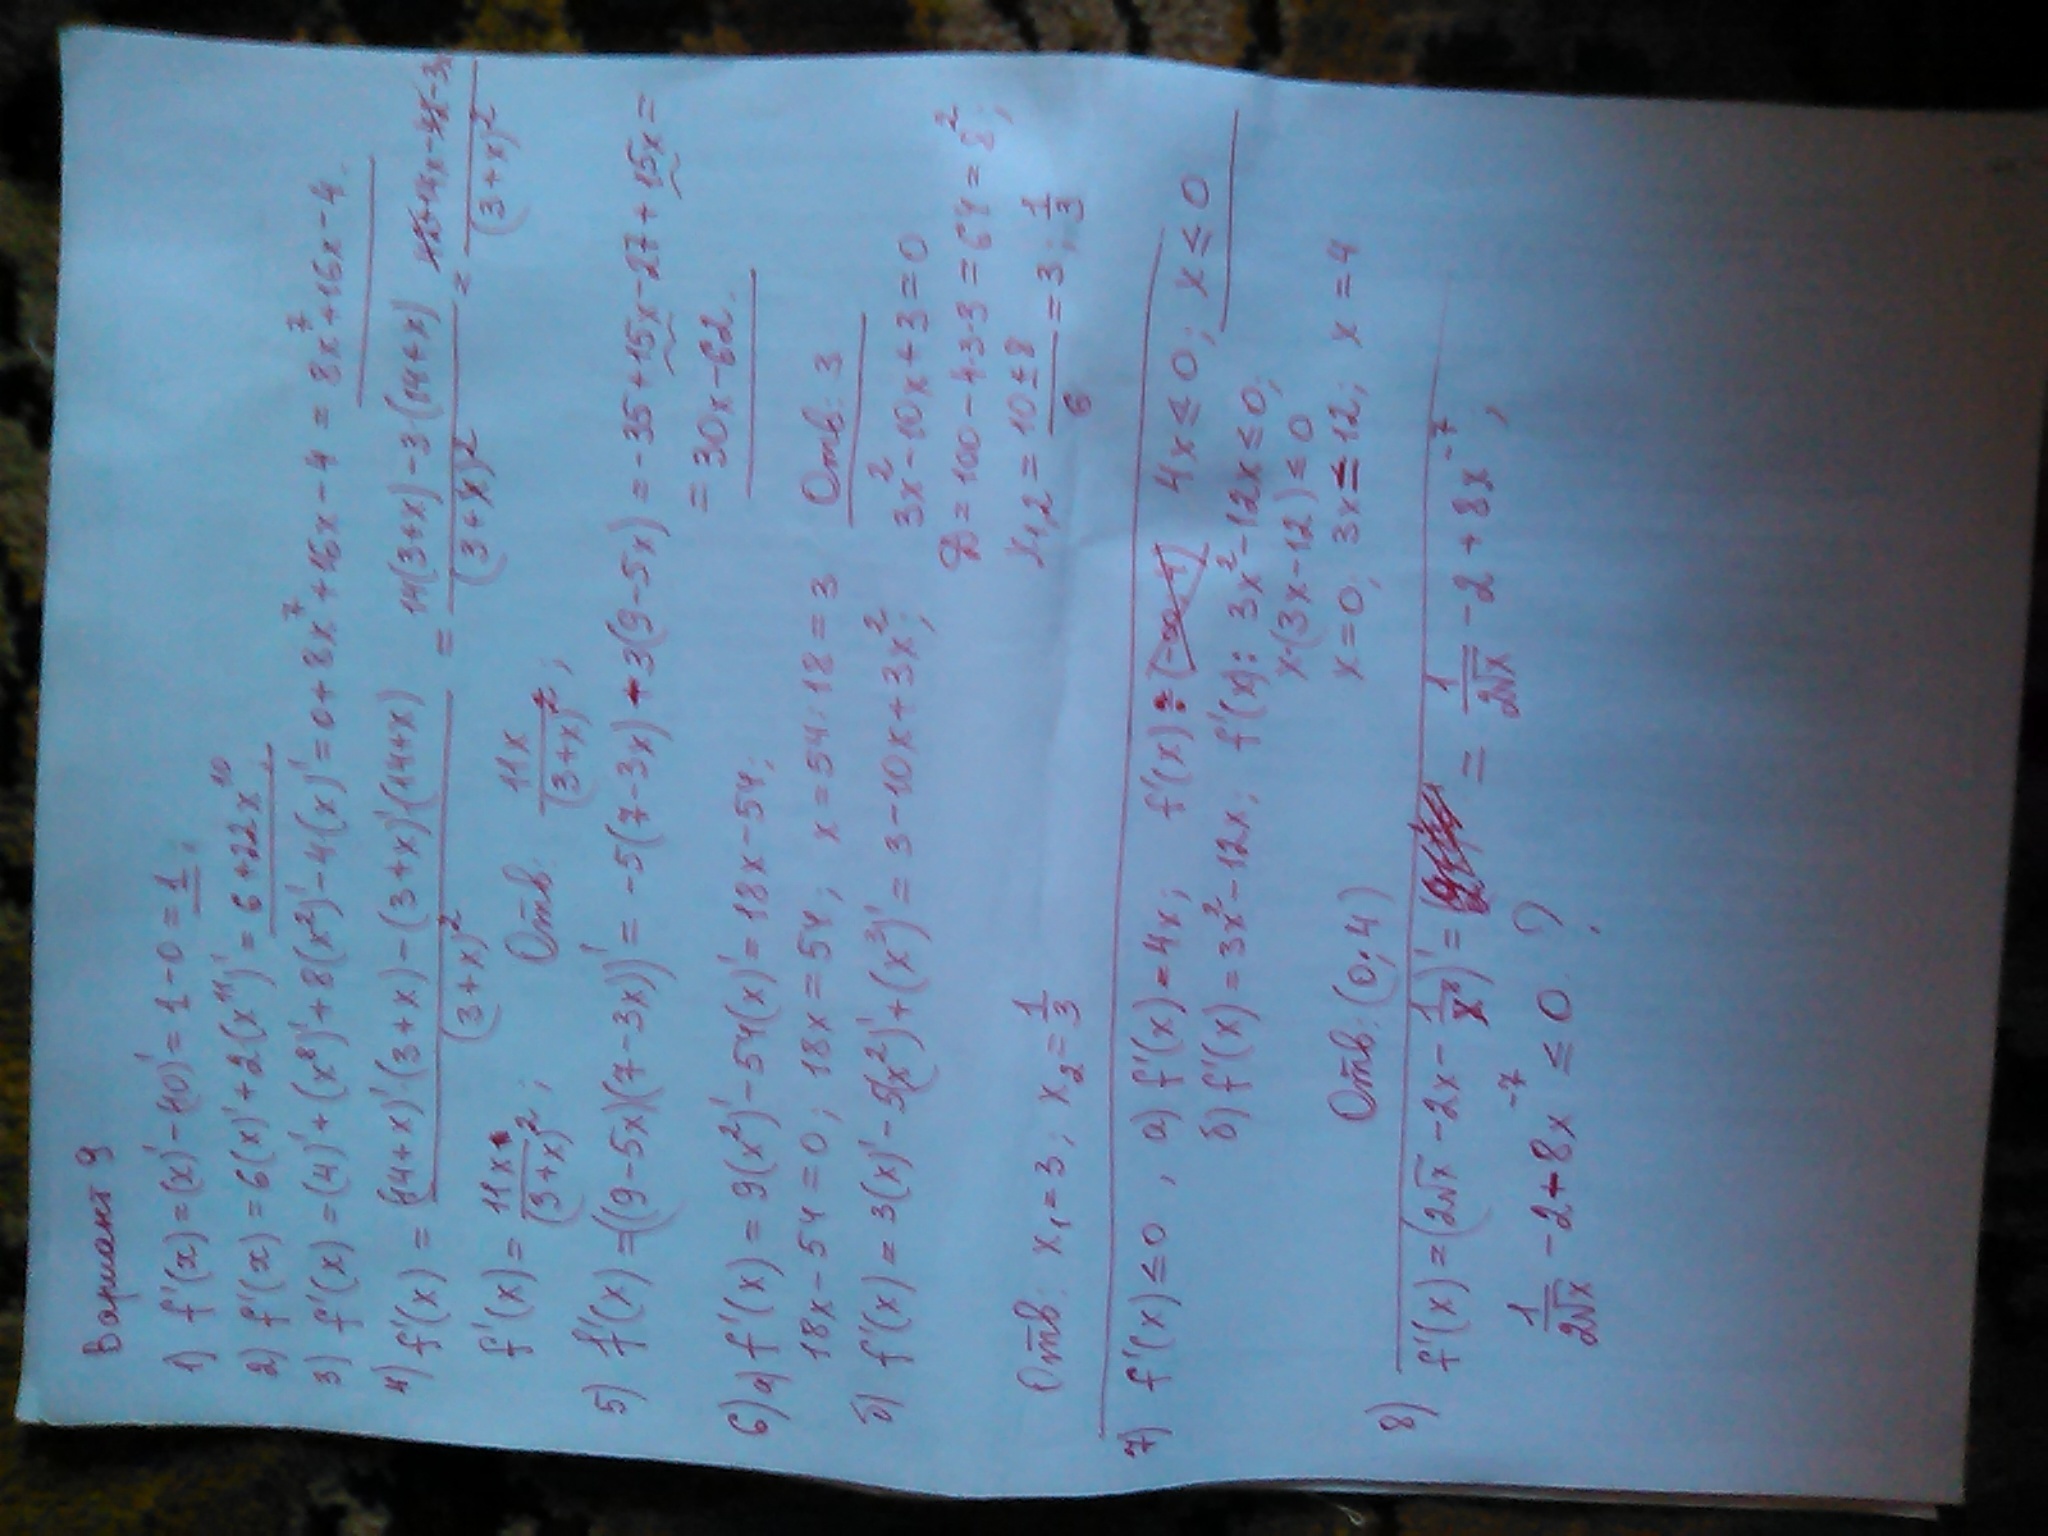 Вариант 9
1) f'(x) = (x)' - (40)' = 1 - 0 = 1;
2) f'(x) = 6(x)' + 2(x¹¹)' = 6 + 22x¹⁰
3) f'(x) = (4)' + (x⁸)' + 8(x²)' - 4(x)' = 0 + 8x⁷ + 16x - 4 = 8x⁷ + 16x - 4.
4) f'(x) = (14+x)'·(3+x) - (3+x)'·(14+x) / (3+x)² = 14(3+x) - 3·(14+x) / (3+x)² =
f'(x) = 11x / (3+x)²; Отв: 11x / (3+x)²;
5) f'(x) = ((9-5x)(7-3x))' = -5(7-3x) + 3(9-5x) = -35 + 15x - 27 + 15x =
= 30x - 62.
6) а) f'(x) = 9(x²)' - 54(x)' = 18x - 54;
18x - 54 = 0; 18x = 54; x = 54:18 = 3 Отв: 3
б) f'(x) = 3(x)' - 5(x²)' + (x³)' = 3 - 10x + 3x²; 3x² - 10x + 3 = 0
D = 100 - 4·3·3 = 64 = 8²;
x1,2 = 10 ± 8 / 6 = 3; 1/3
Отв: x₁ = 3; x₂ = 1/3
7) f'(x) ≤ 0, а) f'(x) = 4x; f'(x): 4x ≤ 0; x ≤ 0
б) f'(x) = 3x² - 12x; f'(x): 3x² - 12x ≤ 0;
x·(3x-12) ≤ 0
x = 0; 3x ≤ 12; x = 4
Отв: (0; 4)
8) f'(x) = (2√x - 2x - 1/x⁸)' = = 1/2√x - 2 + 8x⁻⁷;
1/2√x - 2 + 8x⁻⁷ ≤ 0 ?